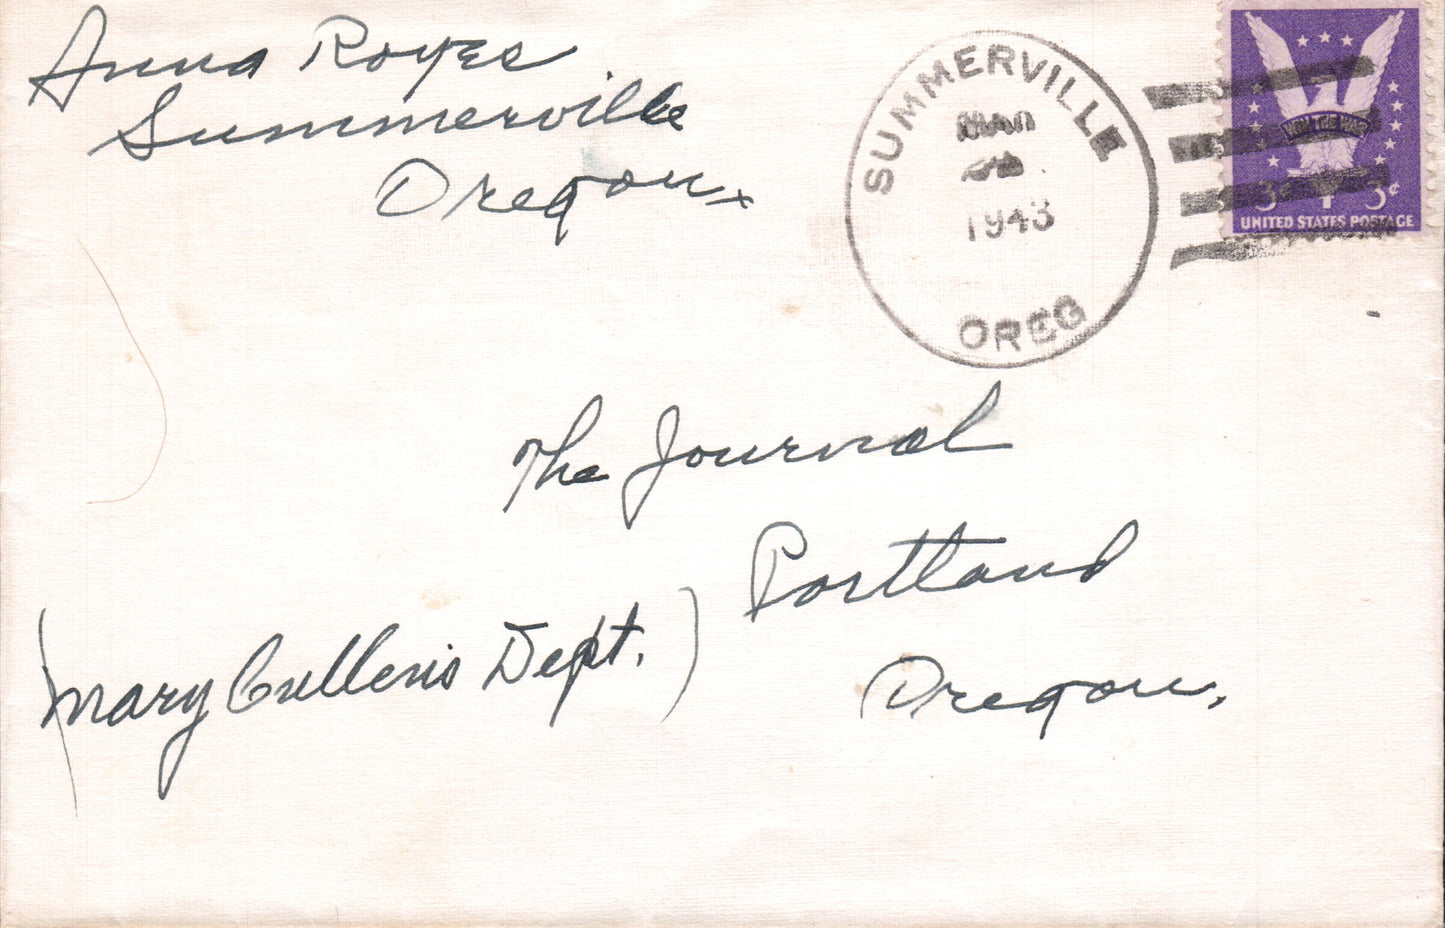 Anna Royes
Summerville
Oregon.
SUMMERVILLE
MAR
1943
OREG
WIN THE WAR
3¢ 3¢
UNITED STATES POSTAGE
The Journal
Portland
Oregon.
(Mary Cullen's Dept.)